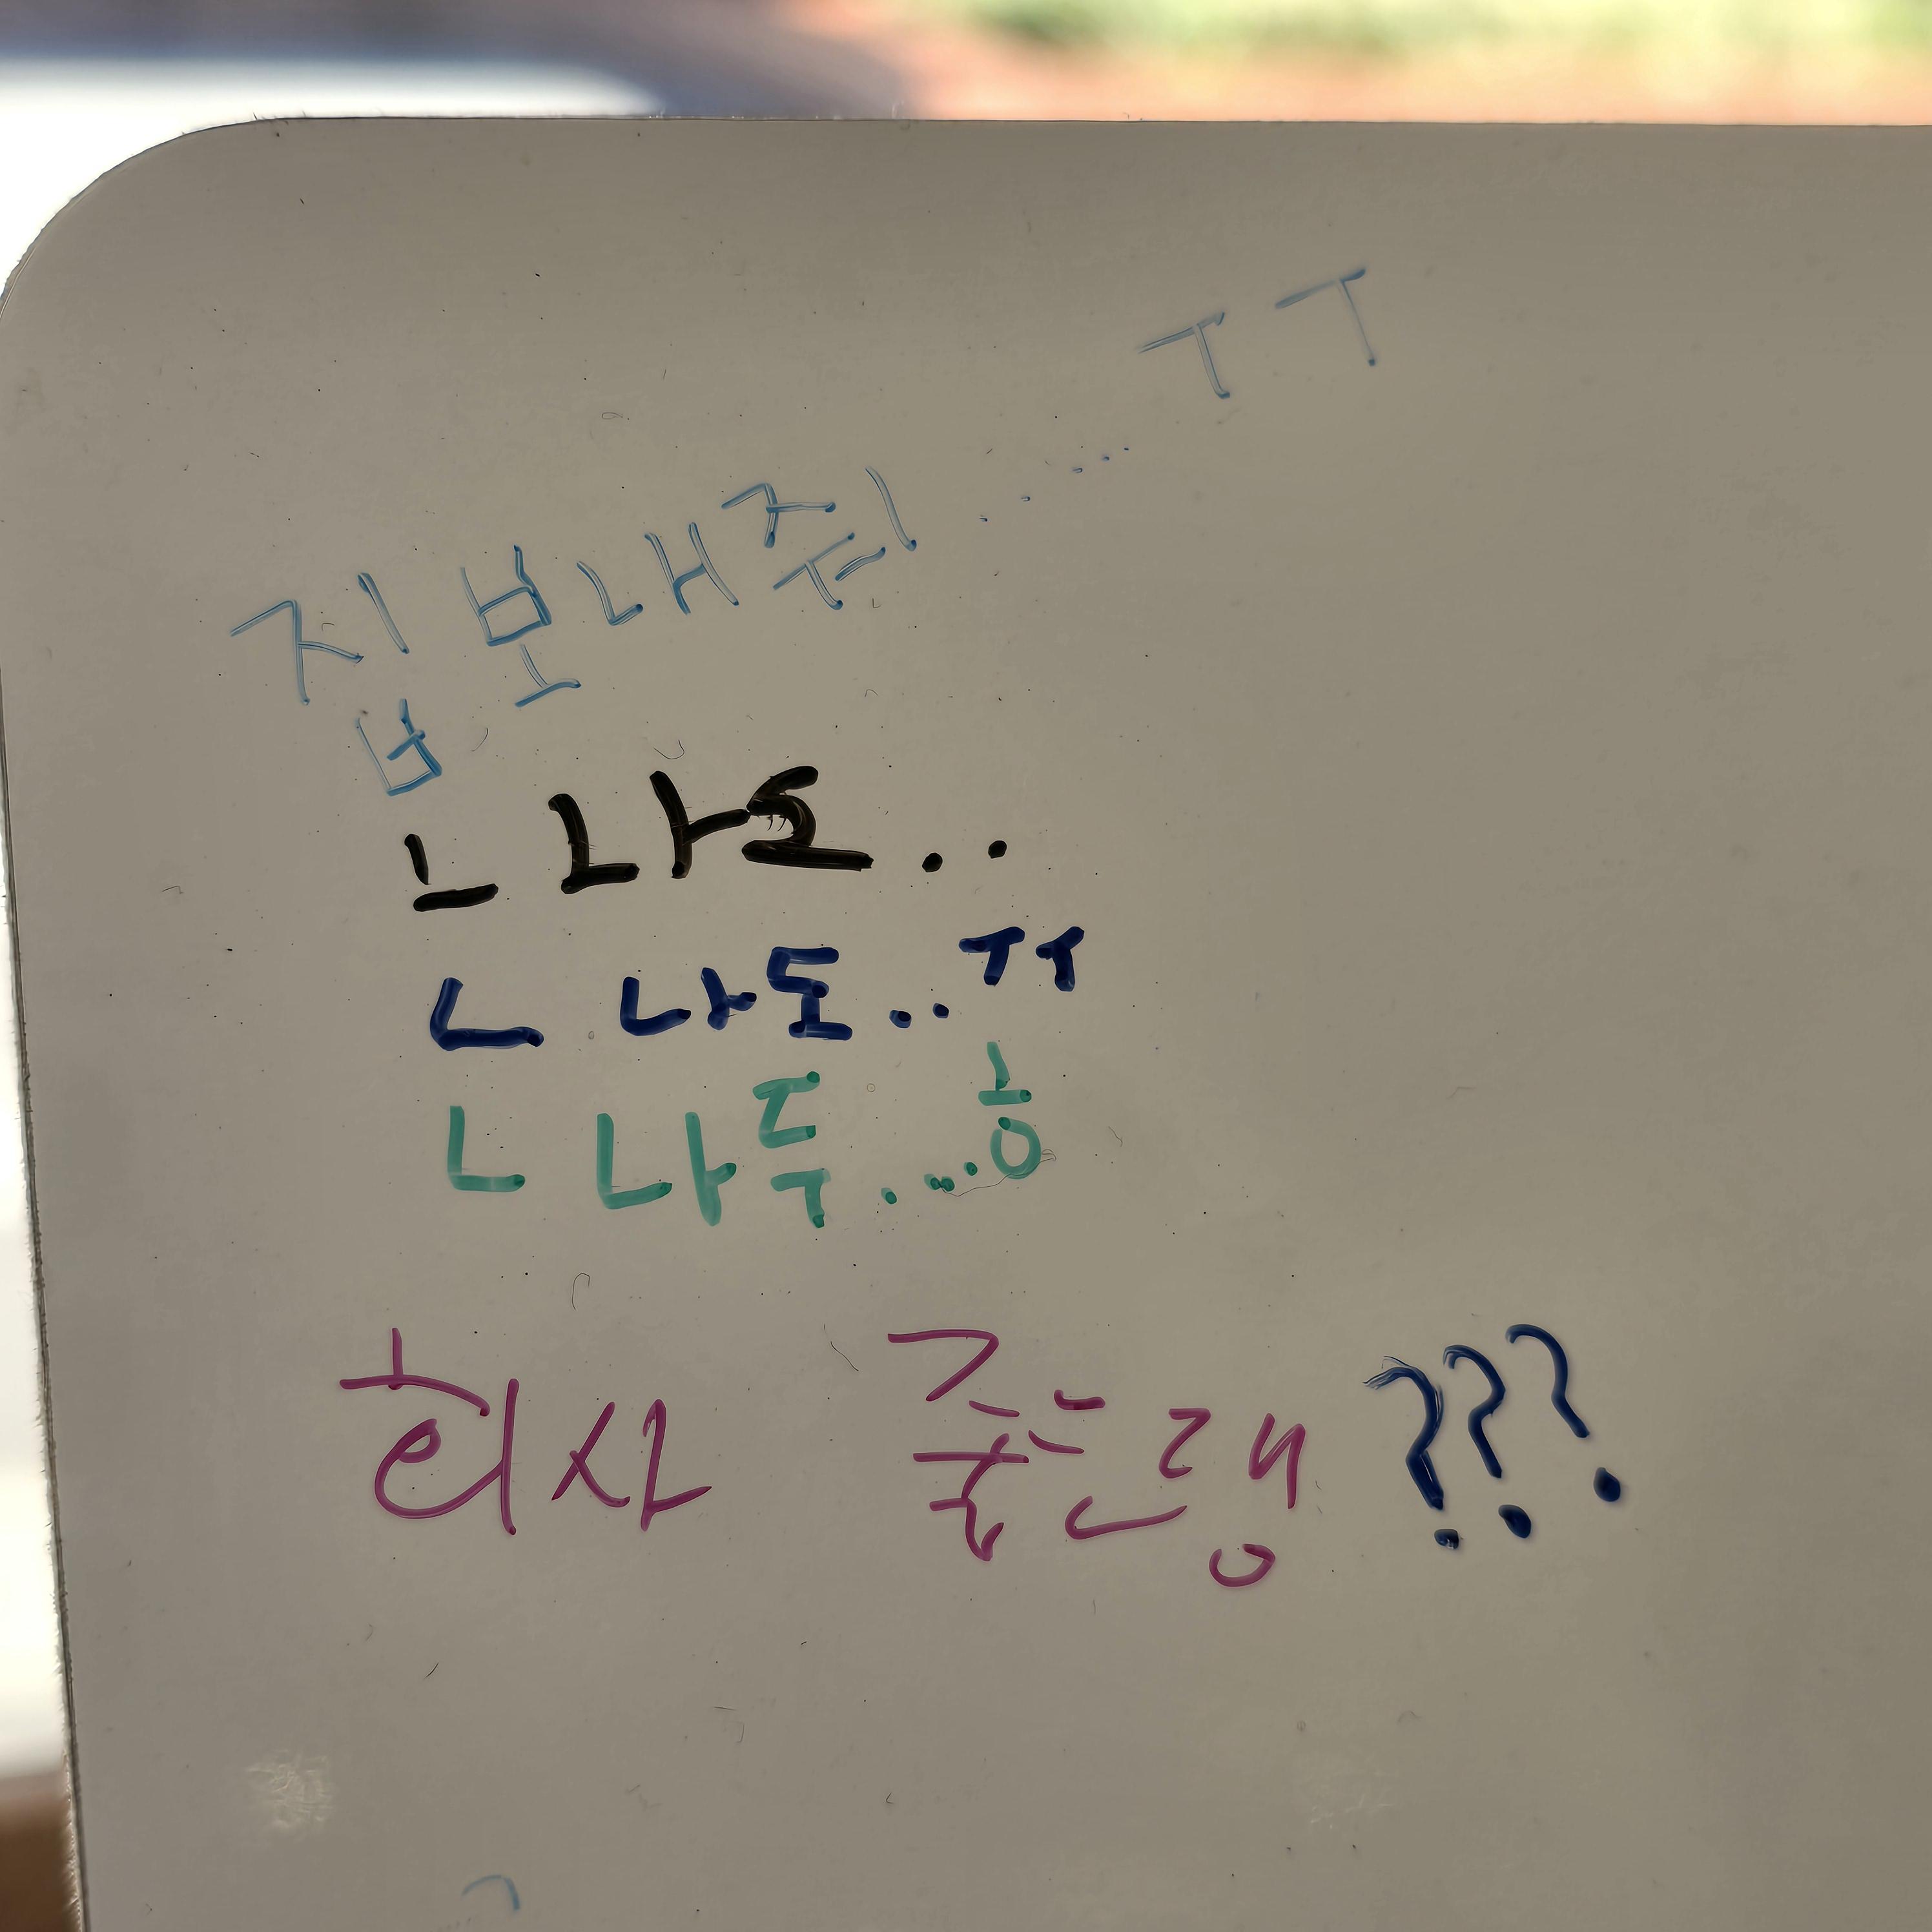 집 보내줘 ..... ㅜㅜ
ㄴ 나도..
ㄴ 나도..ㅜㅜ
ㄴ 나두....ㅎ
회사 ???